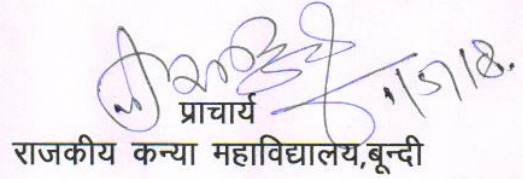 1/5/18.
प्राचार्य
राजकीय कन्या महाविद्यालय,बून्दी